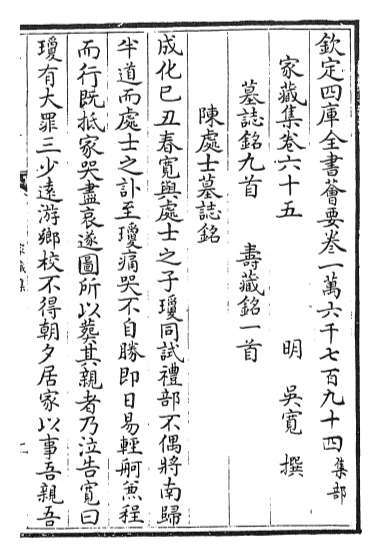 欽定四庫全書薈要卷一萬六千七百九十四集部
家藏集卷六十五　明　吳寬　撰
墓誌銘九首　壽藏銘一首
陳處士墓誌銘
成化己丑春寬與處士之子瓊同試禮部不偶將南歸
半道而處士之訃至瓊痛哭不自勝即日易輕舸兼程
而行既抵家哭盡哀遂圖所以葬其親者乃泣告寬曰
瓊有大罪三少遠游鄉校不得朝夕居家以事吾親吾